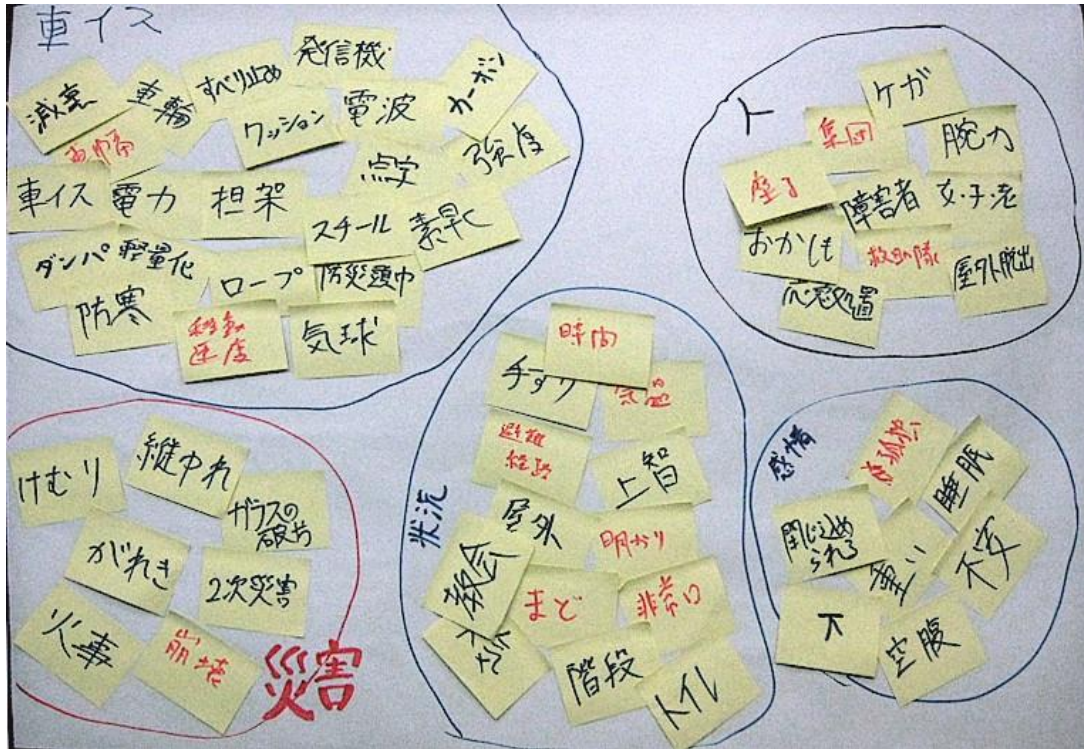 車イス
減衰
車輪
すべり止め
発信機
カーボン
クッション
電波
点字
強度
車イス
電力
担架
スチール
素早く
ダンパ
軽量化
ロープ
防災頭巾
防寒
移動
速度
気球
人
ケガ
集団
腕力
座る
障害者
女・子・老
おかしも
救助隊
屋外脱出
応急処置
災害
けむり
縦ゆれ
ガラスの
破片
がれき
2次災害
火事
崩壊
状況
時間
手すり
避難
経路
上智
屋外
明かり
教会
まど
非常口
階段
トイレ
感情
睡眠
閉じ込め
られる
重い
不安
空腹